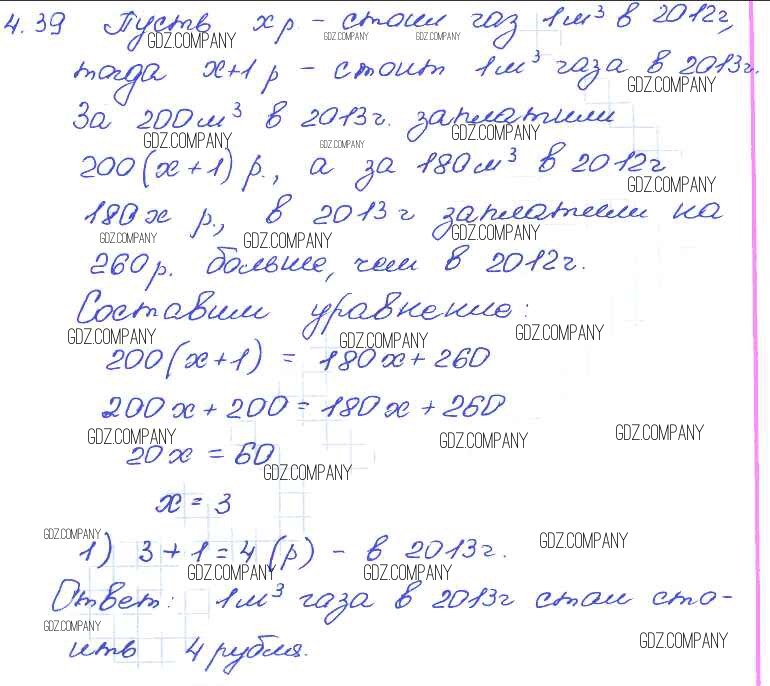 4.39 Пусть x р – стоил газ 1м³ в 2012г,
GDZ.COMPANY GDZ.COMPANY GDZ.COMPANY
тогда x+1 р – стоит 1м³ газа в 2013г.
GDZ.COMPANY
За 200м³ в 2013г. заплатили
GDZ.COMPANY GDZ.COMPANY GDZ.COMPANY
200(x+1) р., а за 180м³ в 2012г
GDZ.COMPANY
180x р., в 2013г заплатили на
GDZ.COMPANY GDZ.COMPANY GDZ.COMPANY
260р. больше, чем в 2012г.
Составим уравнение:
GDZ.COMPANY GDZ.COMPANY GDZ.COMPANY
200(x+1) = 180x + 260
200x + 200 = 180x + 260
GDZ.COMPANY GDZ.COMPANY GDZ.COMPANY
20x = 60
GDZ.COMPANY
x = 3
GDZ.COMPANY GDZ.COMPANY
1) 3+1=4 (р) – в 2013г.
GDZ.COMPANY GDZ.COMPANY
Ответ: 1м³ газа в 2013г стал сто-
GDZ.COMPANY GDZ.COMPANY
ить 4 рубля.